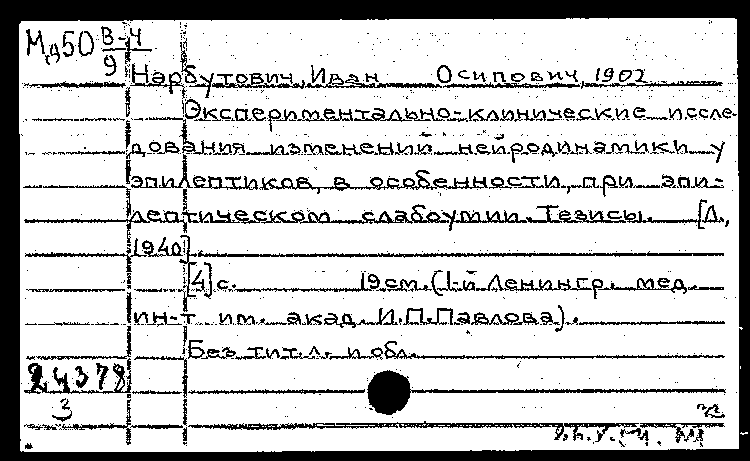 Мд50 В-4
9
Нарбутович, Иван Осипович, 1902
Экспериментально-клинические иссле-
дования изменений нейродинамики у
эпилептиков, в особенности, при эпи-
лептическом слабоумии. Тезисы. [Л.,
1940].
[4] с. 19 см. (1-й Ленингр. мед.
ин-т им. акад. И.П.Павлова).
Без тит.л. и обл.
24378
3